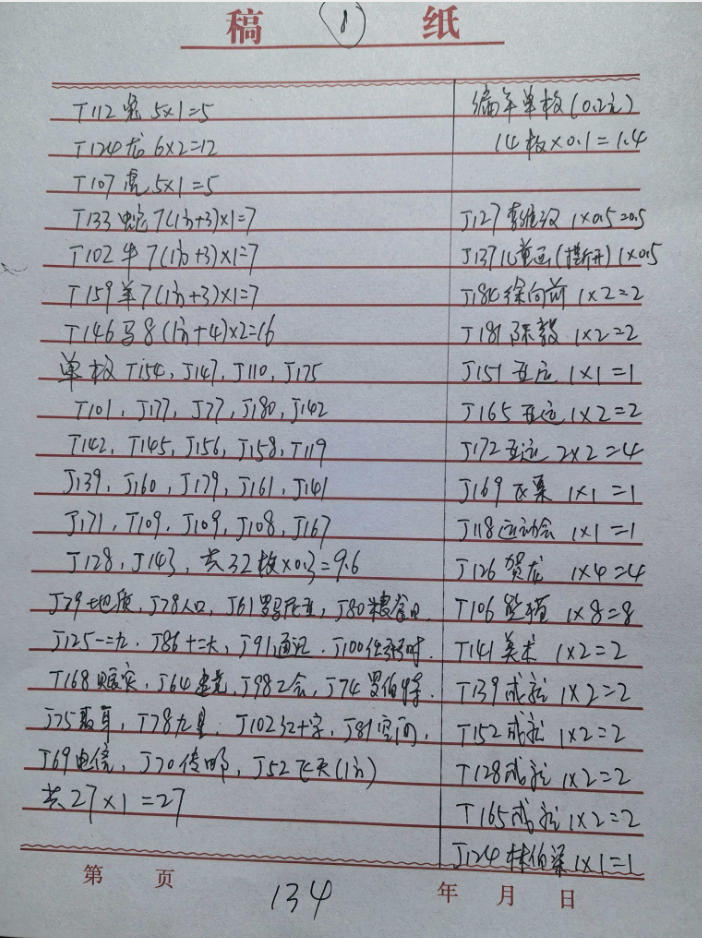 稿 ⑧ 纸
T112兔 5×1=5
T124龙 6×2=12
T107虎 5×1=5
T133蛇 7(1访+3)×1=7
T102牛 7(1访+3)×1=7
T159羊 7(1访+3)×1=7
T146马 8(1访+4)×2=16
单枚 T154, J147, J110, J175
T101, J177, J77, J180, J142
T142, T145, J156, J158, T119
J139, J160, J179, J161, J141
J171, T109, J109, J108, J167
J128, J143, 共32枚×0.3=9.6
J29地质, J78人口, J61罗马尼亚, J80粮食日,
J125一二九, J86十二大, J91通讯, J100任弼时,
T168赈灾, J64, J98工会, J74罗伯特,
J75聂耳, T78九星, J102红十字, J81空间,
J69电信, J70传邮, J52飞天(1访)
共27×1=27
编年单枚(0.2元)
14枚×0.1=1.4
J127李维汉 1×0.5=0.5
J137儿童画(撕开) 1×0.5
J184徐向前 1×2=2
J181陈毅 1×2=2
J151亚运 1×1=1
J165亚运 1×2=2
J172亚运 2×2=4
J169 1×1=1
J118运动会 1×1=1
J126贺龙 1×4=4
T106熊猫 1×8=8
T141美术 1×2=2
T139成就 1×2=2
T152成就 1×2=2
T128成就 1×2=2
T165成就 1×2=2
J124林伯渠 1×1=1
第 页 134 年 月 日